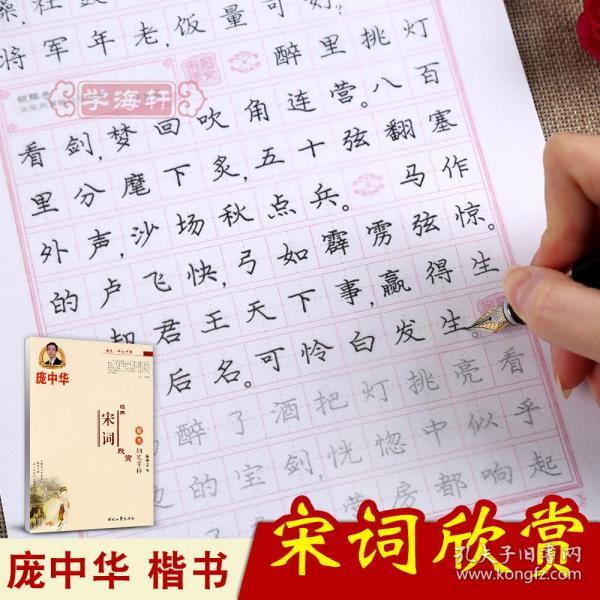 将军年老,饭量可好?
学海轩
醉里挑灯
看剑,梦回吹角连营。八百
里分麾下炙,五十弦翻塞
外声,沙场秋点兵。 马作
的卢飞快,弓如霹雳弦惊。
却君王天下事,赢得生
后名。可怜白发生。
醉了酒把灯挑亮看
的宝剑,恍惚中似乎
营房都响起
庞中华
经典
宋词
欣赏
楷书
钢笔字帖
庞中华 楷书
宋词欣赏
孔夫子旧书网
www.kongfz.com